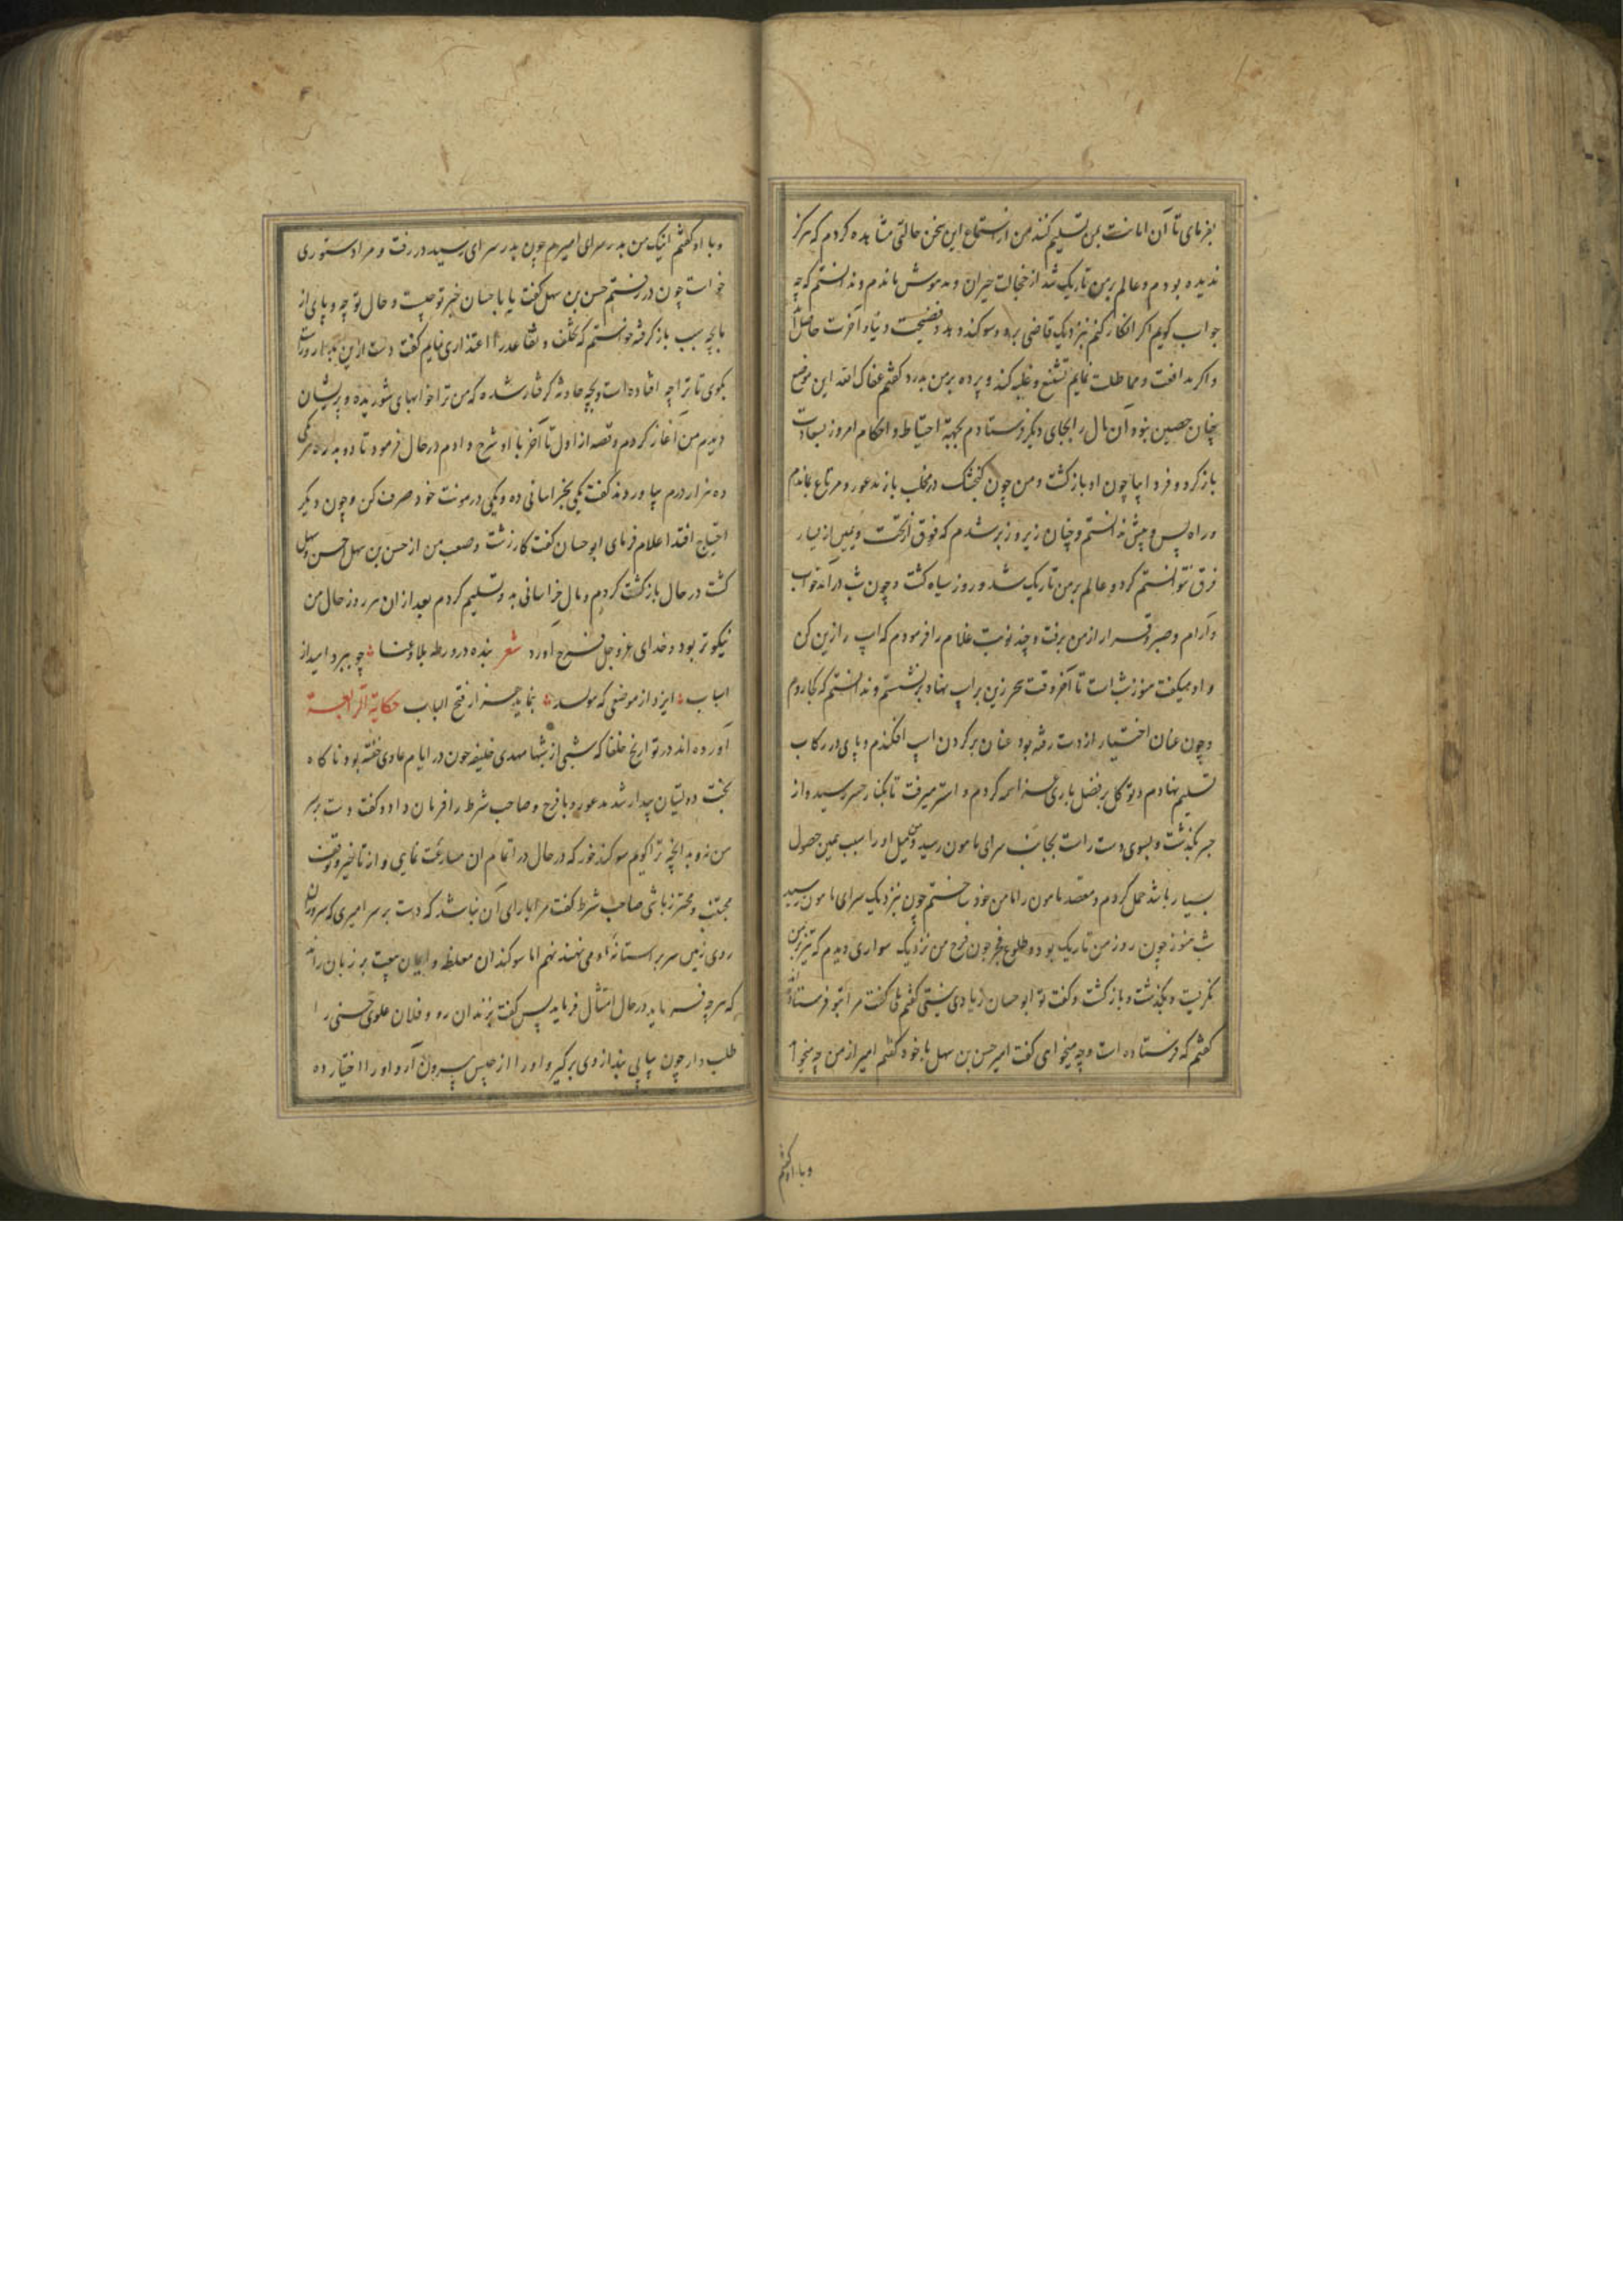 بفرمای تا آن امانت بمن تسلیم کنند من از استماع این سخن حالتی مشاهده کردم که هرکز
ندیده بودم و عالم بر من تاریک شد از خجالت حیران و مدهوش ماندم و ندانستم که چه
جواب کویم اکر انکار کنم نزدیک قاضی برد و سوکند دهد و فضیحت دنیا و آخرت حاصل آید
و اکر مدافعت و مماطلت نمایم تشنیع و غلبه کند و پرده بر من بدرد کفتم عفاک الله این موضع
چنان حصین نبود آن مال را بجای دیکر فرستادم بجهة احتیاط و احکام امروز بسعادت
باز کرد و فردا بیا چون او باز کشت و من چون کنجشک در مخلب باز مذعور و مرتاع بماندم
و راه پس و پیش ندانستم و چنان زیر و زبر شدم که فوق از تحت و یمین از یسار
فرق نتوانستم کرد و عالم بر من تاریک شد و روز سیاه کشت و چون شب درآمد خواب
و آرام و صبر و قرار از من برفت و چند نوبت غلام را فرمودم که اسپ را زین کن
و او میکفت هنوز شب است تا آخر وقت سحر زین بر اسپ نهاد برنشستم و ندانستم که کجا روم
و چون عنان اختیار از دست رفته بود عنان بر کردن اسپ افکندم و پای در رکاب
تسلیم نهادم و توکل بر فضل باری عز اسمه کردم و استر میرفت تا بکنار جسر رسید و از
جسر بکذشت و بسوی دست راست بجانب سرای مامون رسید و میل او را سبب یمن حصول
بسیار باشد حمل کردم و مقصد مامون را مامن خود ساختم چون نزدیک سرای مامون رسید
شب هنوز چون روز من تاریک بود و طلوع فجر چون فرح من نزدیک سواری دیدم که تیز در من
نکریست و بکذشت و باز کشت و کفت تو ابو حسان زیادی نیستی کفتم بلی کفت مرا بتو فرستاده‌اند
کفتم که فرستاده است و چه میخواهی کفت امیر حسن بن سهل با خود کفتم امیر از من چه میخواهد
و با او کفتم
و با او کفتم اینک من بدر سرای امیرم چون بدر سرای رسید در رفت و مرا دستوری
خواست چون در رفتم حسن بن سهل کفت یا با حسان خبر تو چیست و حال تو چه و پای از
ما بچه سبب باز کرفته خواستم که تخلف و تقاعد را اعتذاری نمایم کفت دست ازین بدار و راست
بکوی تا ترا چه افتاده است و بچه حادثه کرفتار شده که من ترا خوابهای شوریده و پریشان
دیدم من آغاز کردم و قصه از اول تا آخر با او شرح دادم در حال فرمود تا دو بدره هر یکی
ده هزار درم بیاوردند کفت یکی بخراسانی ده و یکی در مونت خود صرف کن و چون دیکر
احتیاج افتد اعلام فرمای ابو حسان کفت کار زشت و صعب من از حسن بن سهل حسن و سهل
کشت در حال باز کشت کردم و مال خراسانی بدو تسلیم کردم بعد از ان هر روز حال من
نیکوتر بود و خدای عز و جل فرج آورد شعر بنده در ورطه بلا و عنا چو ببرد امید از
اسباب ایزد از موضعی که نرسد بنماید جز از فتح الباب حکایة الرابعة
آورده‌اند در تواریخ خلفا که شبی از شبها مهدی خلیفه چون در ایام عادی خفته بود ناکاه
بخت ده لیتان بیدار شد مذعور و با فزع و صاحب شرط را فرمان داد و کفت دست بر سر
من نه و بدانچه ترا کویم سوکند خور که در حال در اتمام ان مسارعت نمایی و از تاخیر و توقف
مجتنب و محترز باشی صاحب شرط کفت مرا یارای آن نباشد که دست بر سر امیری که سروران
روی زمین سر بر استانه او می نهند نهم اما سوکندان مغلظ و ایمان بیعت بر زبان راند
که هرچه فرماید در حال امتثال فرماید پس کفت بزندان رو و فلان علوی حسنی را
طلب دار چون بیابی بند از وی برکیر و او را از حبس بیرون آر و او را اختیار ده